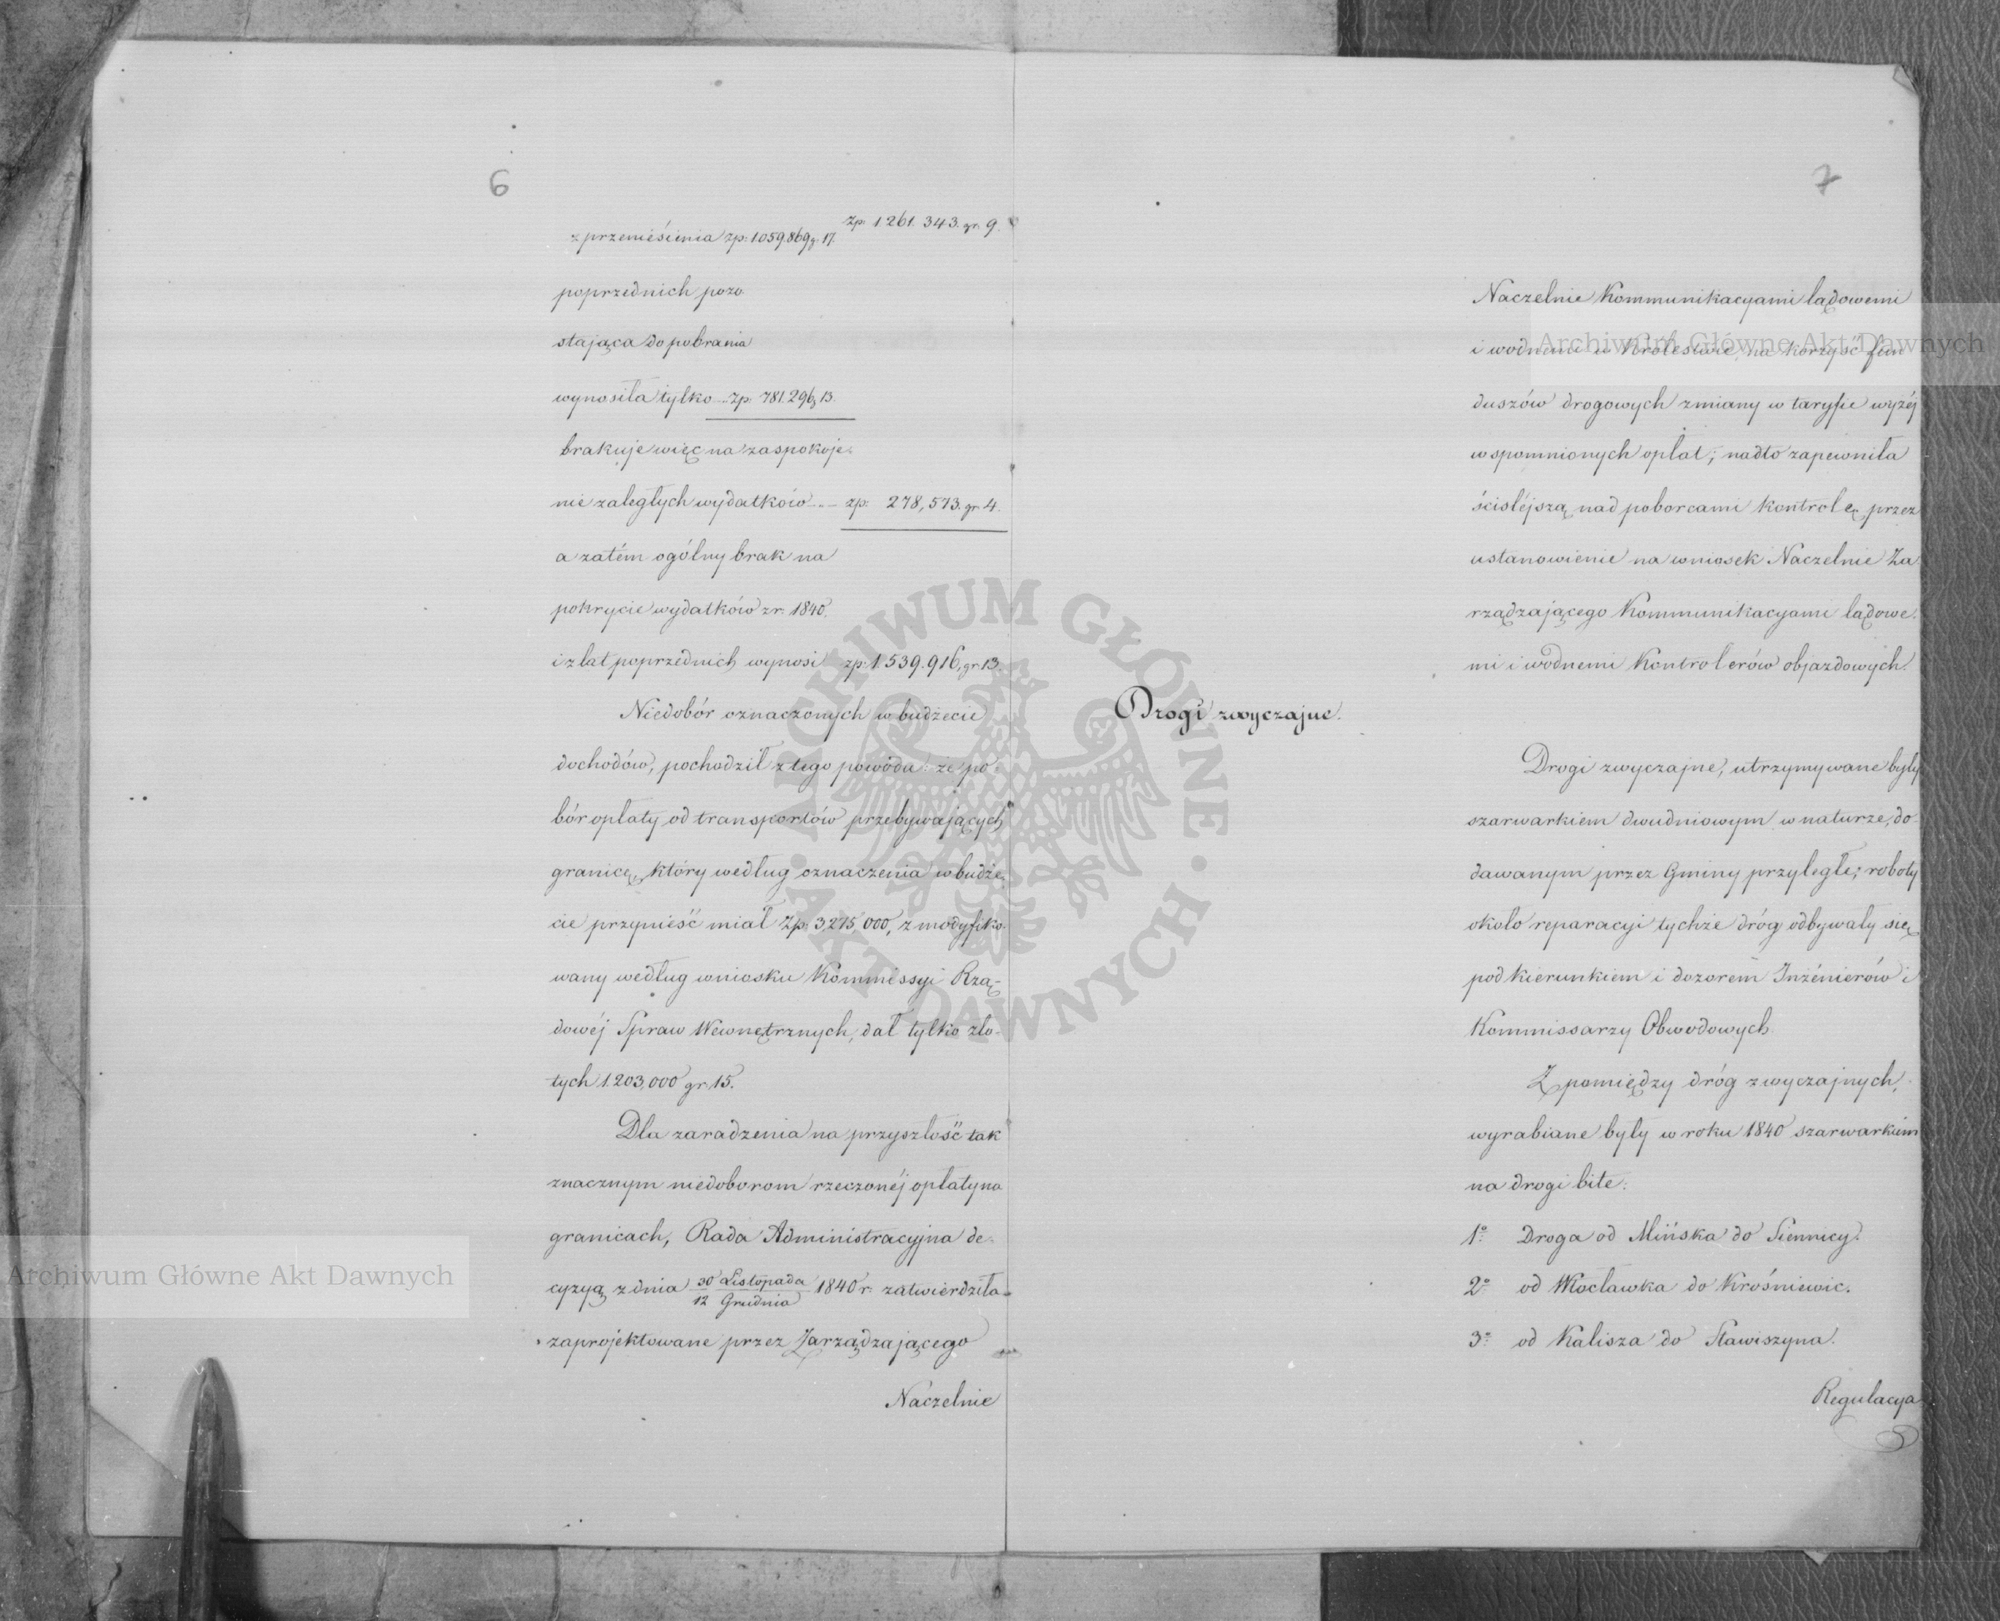 6
z przeniesienia zp: 1.059.869 g. 17. zp: 1 261. 343. gr. 9.
poprzednich pozo
stająca do pobrania
wynosiła tylko zp: 781.296 g 13.
brakuje więc na zaspokoje-
nie zaległych wydatków zp: 278,573. gr 4.
a zatém ogólny brak na
pokrycie wydatków z r. 1840.
i z lat poprzednich wynosi zp: 1.539.916, gr 13.
Niedobór oznaczonych w budżecie
dochodów, pochodził z tego powodu: że po-
bór opłaty od transportów przebywających
granicę, który według oznaczenia w budże-
cie przynieść miał Zp: 3,275,000, zmodyfiko-
wany według wniosku Kommissyi Rzą-
dowéj Spraw Wewnętrznych, dał tylko zło-
tych 1.203,000 gr 15.
Dla zaradzenia na przyszłość tak
znacznym niedoborom rzeczonéj opłaty na
granicach, Rada Administracyjna de-
cyzyą z dnia 30 Listopada / 12 Grudnia 1840 r. zatwierdziła
zaprojektowane przez Zarządzającego
Naczelnie
7
Naczelnie Kommunikacyami lądowemi
i wodnemi w Królestwie, na korzyść fun
duszów drogowych zmiany w taryfie wyżéj
wspomnionych opłat; nadto zapewniła
ściśléjszą nad poborcami kontrolę, przez
ustanowienie na wniosek Naczelnie Za
rządzającego Kommunikacyami lądowe-
mi i wodnemi Kontrolerów objazdowych.
Drogi zwyczajne.
Drogi zwyczajne, utrzymywane były
szarwarkiem dwudniowym w naturze, do-
dawanym przez Gminy przyległe; roboty
około reparacyi tychże dróg odbywały się
pod kierunkiem i dozorem Inżénierów i
Kommissarzy Obwodowych.
Z pomiędzy dróg zwyczajnych,
wyrabiane były w roku 1840 szarwarkiem
na drogi bite:
1º Droga od Mińska do Siennicy.
2º od Włocławka do Krośniewic.
3º od Kalisza do Stawiszyna.
Regulacya
Archiwum Główne Akt Dawnych
Archiwum Główne Akt Dawnych
ARCHIWUM GŁÓWNE · AKT DAWNYCH ·